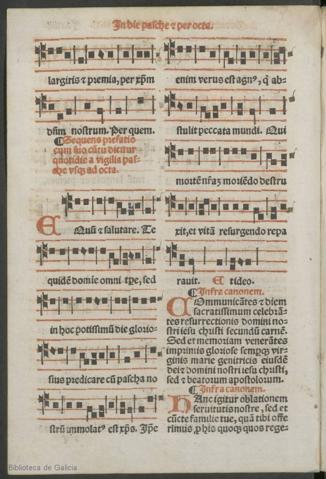 In die pasche ⁊ per octa.
largiris ⁊ premia, per xp̄m
dn̄m nostrum. Per quem.
¶Sequens prefatio
cum suo cātu dicitur
quotidie a vigilia pas-
che vsq̄ ad octa.
EQuū ⁊ salutare. Te
quidē dn̄ie omni tp̄e, sed
in hoc potissimū die glorio-
sius predicare cū pascha no
strū īmolatꝰ est xp̄s. Ip̄e
enim verus est agnꝰ, q̄ ab-
stulit peccata mundi. Qui
mortē nr̄aȝ moriēdo destru
xit, et vitā resurgendo repa
rauit. Et ideo.
¶Infra canonem.
COmmunicātes ⁊ diem
sacratissimum celebrā-
tes resurrectionis domini nos
tri iesu christi secundū carnē.
Sed et memoriam venerātes
imprimis gloriose semperq̄ vir-
ginis marie genitricis eiusdē
dei ⁊ domini nostri iesu christi,
sed ⁊ beatorum apostolorum.
¶Infra canonem.
HAnc igitur oblationem
seruitutis nostre, sed et
cūcte familie tue, quā tibi offe
rimus ꝓ his quoqȝ quos rege-
Biblioteca de Galicia